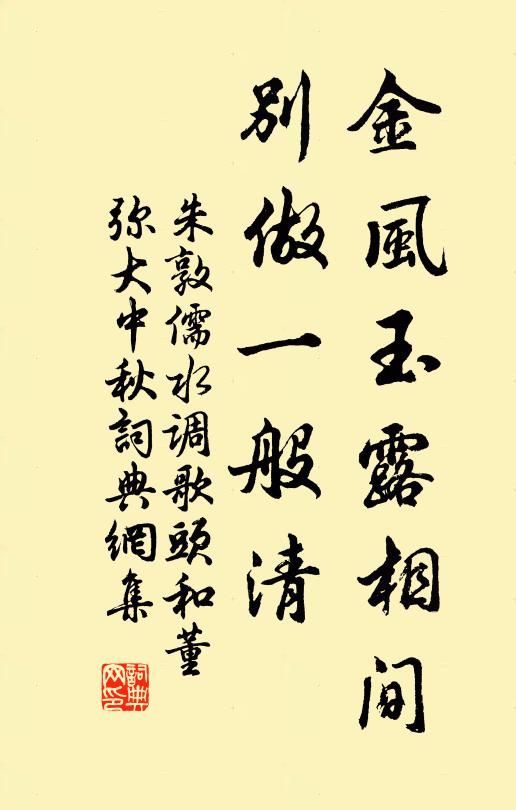 金風玉露相間
別做一般清
朱敦儒水调歌頭和董
弥大中秋詞典網集
詞典网印